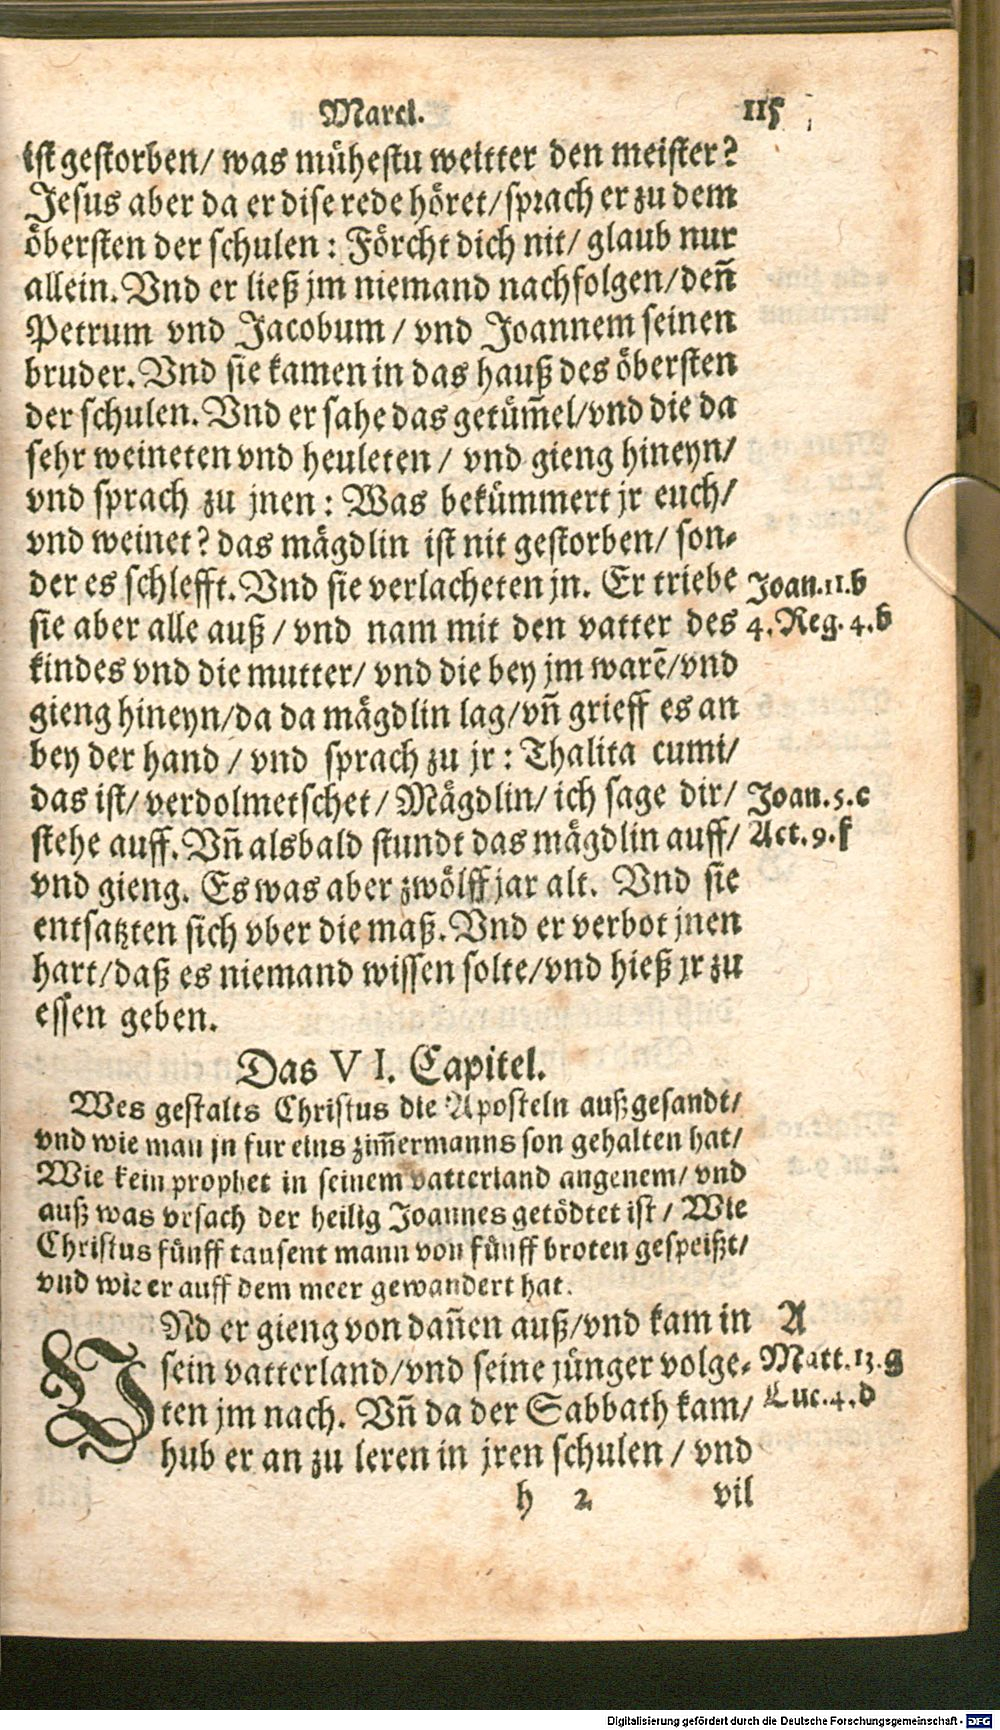 Marci. 115
ist gestorben/ was mühestu weitter den meister?
Jesus aber da er dise rede höret/sprach er zu dem
öbersten der schulen: Förcht dich nit/ glaub nur
allein. Vnd er ließ jm niemand nachfolgen/deñ
Petrum vnd Jacobum / vnd Joannem seinen
bruder. Vnd sie kamen in das hauß des öbersten
der schulen. Vnd er sahe das getüm̃el/vnd die da
sehr weineten vnd heuleten / vnd gieng hineyn/
vnd sprach zu jnen: Was bekümmert jr euch/
vnd weinet? das mägdlin ist nit gestorben/ son-
der es schlefft. Vnd sie verlacheten jn. Er triebe Joan.11.b
sie aber alle auß / vnd nam mit den vatter des 4.Reg.4.b
kindes vnd die mutter/ vnd die bey jm warẽ/vnd
gieng hineyn/da da mägdlin lag/vñ grieff es an
bey der hand / vnd sprach zu jr: Thalita cumi/
das ist/ verdolmetschet/ Mägdlin/ ich sage dir/ Joan.5.c
stehe auff. Vñ alsbald stundt das mägdlin auff/ Act.9.f
vnd gieng. Es was aber zwölff jar alt. Vnd sie
entsatzten sich vber die maß. Vnd er verbot jnen
hart/daß es niemand wissen solte/vnd hieß jr zu
essen geben.
Das VI. Capitel.
Wes gestalts Christus die Aposteln außgesandt/
vnd wie man jn fur eins zim̃ermanns son gehalten hat/
Wie kein prophet in seinem vatterland angenem/ vnd
auß was vrsach der heilig Joannes getödtet ist/ Wie
Christus fünff tausent mann von fünff broten gespeißt/
vnd wie er auff dem meer gewandert hat.
VNd er gieng von dañen auß/vnd kam in A
sein vatterland/vnd seine jünger volge- Matt.13.g
ten jm nach. Vñ da der Sabbath kam/ Luc.4.d
hub er an zu leren in jren schulen / vnd
h 2 vil
Digitalisierung gefördert durch die Deutsche Forschungsgemeinschaft - DFG